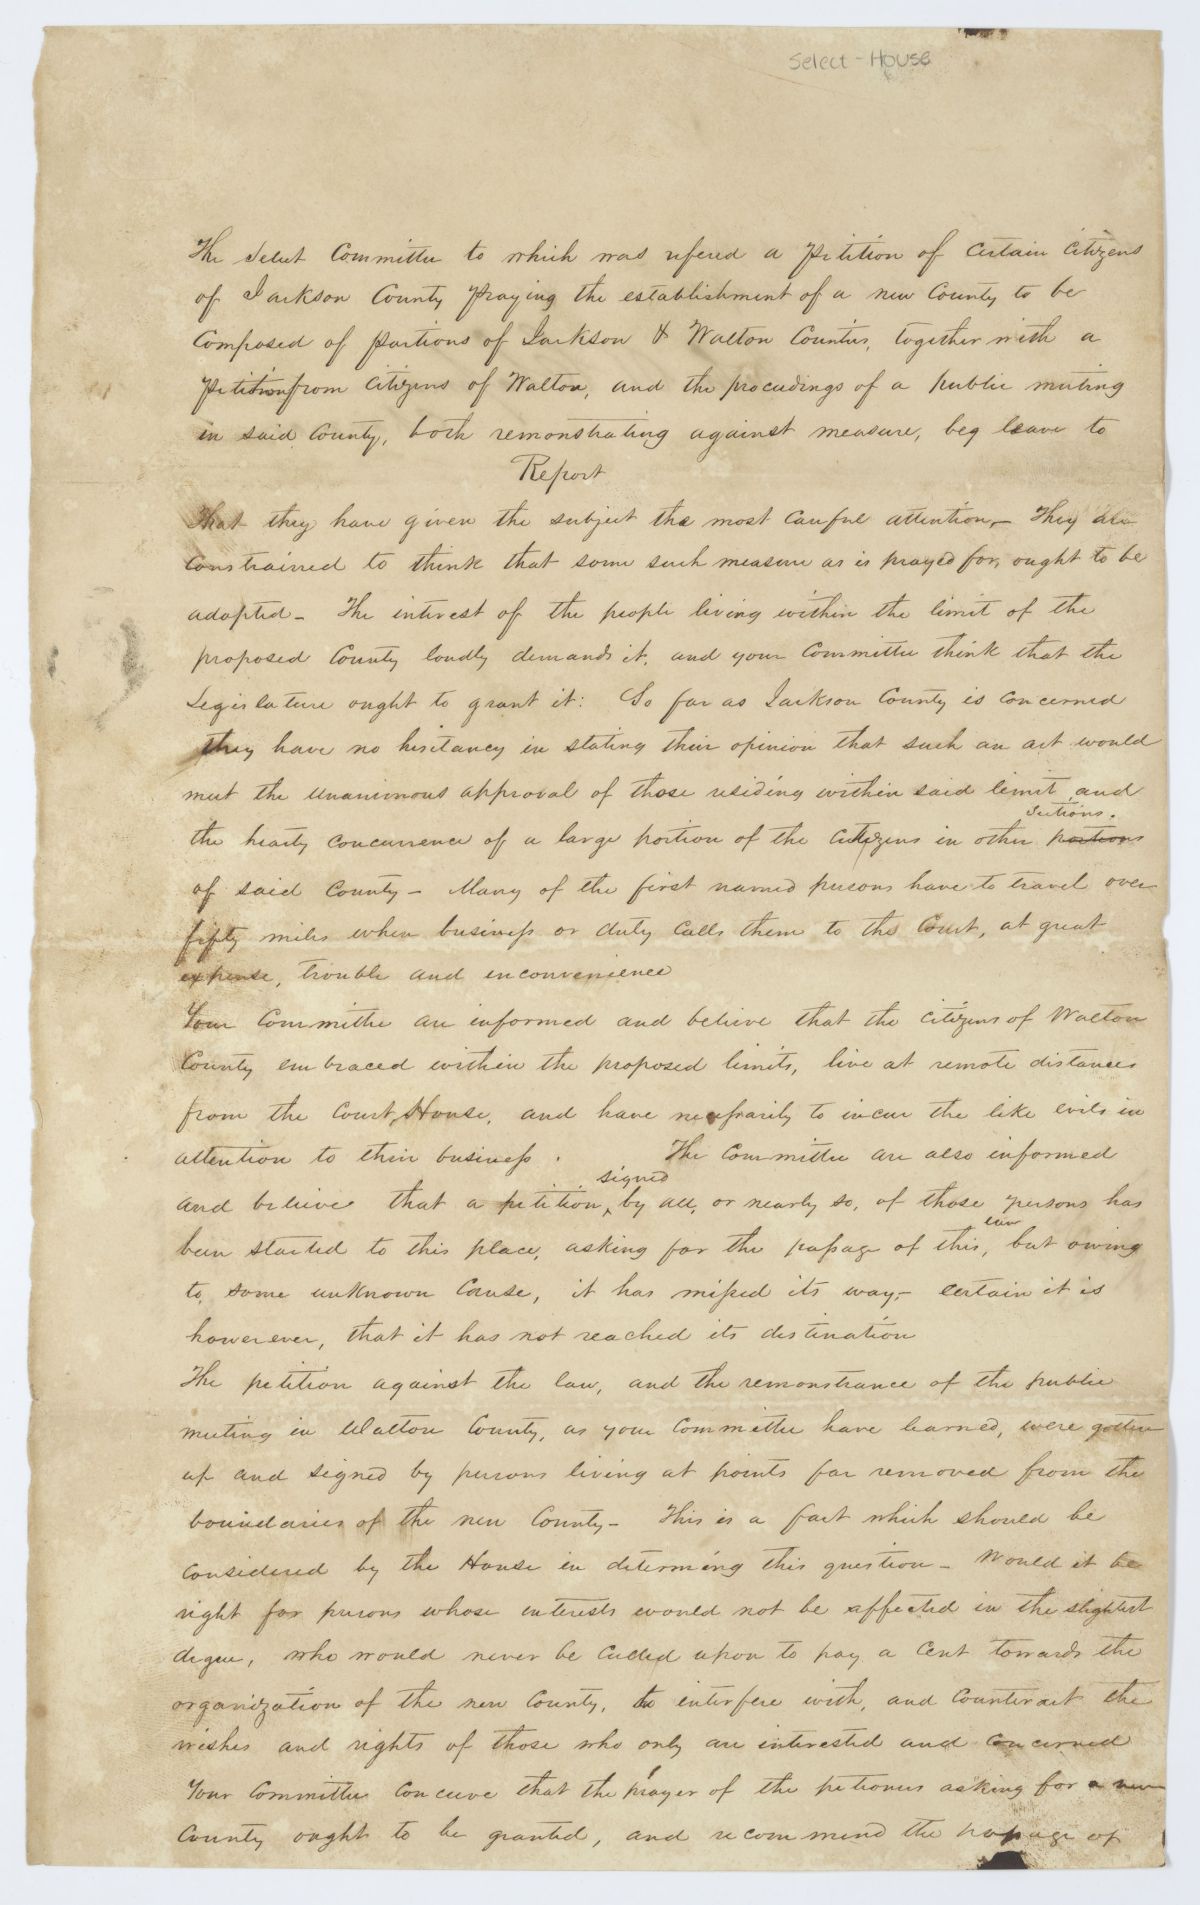 Select - House
The Select Committee to which was refered a Petition of Certain Citizens
of Jackson County Praying the establishment of a new County to be
Composed of portions of Jackson & Walton Counties, together with a
Petition from Citizens of Walton, and the proceedings of a public meeting
in said County, both remonstrating against measure, beg leave to
Report
That they have given the subject the most careful attention, - They are
Constrained to think that some such measure as is prayed for, ought to be
adopted - The interest of the people living within the limit of the
proposed County loudly demands it, and your Committee think that the
Legislature ought to grant it: So far as Jackson County is concerned
they have no hesitancy in stating their opinion that such an act would
meet the unanimous approval of those residing within said limit and
sections.
the hearty concurrence of a large portion of the citizens in other portions
of said County - Many of the first named persons have to travel over
fifty miles when business or duty calls them to the Court, at great
expense, trouble and inconvenience
Your Committee are informed and believe that the citizens of Walton
County embraced within the proposed limits, live at remote distances
from the Court House, and have necessarily to incur the like evils in
attention to their business. The Committee are also informed
signed
and believe that a petition ‸ by all, or nearly so, of those persons has
law
been started to this place, asking for the passage of this, but owing
to some unknown Cause, it has missed its way, - certain it is
however, that it has not reached its distination
The petition against the law, and the remonstrance of the public
meeting in Walton County, as your Committee have learned, were gotten
up and signed by persons living at points far removed from the
boundaries of the new County - This is a fact which should be
considered by the House in determing this question - Would it be
right for persons whose interests would not be affected in the slightest
degree, who would never be Called upon to pay a Cent towards the
organization of the new County, to interfere with, and Counteract the
wishes and rights of those who only are interested and concerned
Your Committee conceive that the prayer of the petioners asking for a new
County ought to be granted, and recommend the passage of